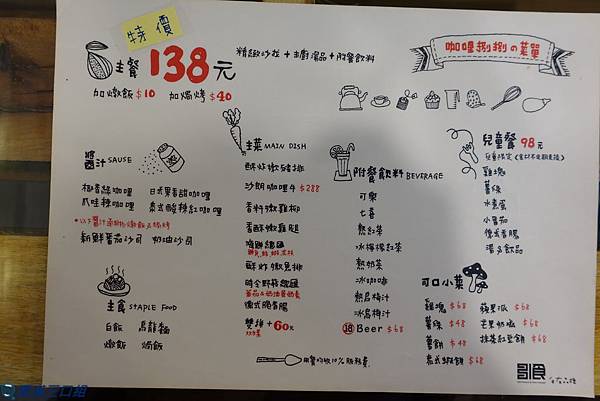 特價
咖哩捌捌の菜單
主餐 138元
精緻沙拉+主廚湯品+附餐飲料
加燉飯$10 加焗烤$40
醬汁 SAUSE
椰香綠咖哩 日式果香甜咖哩
爪哇辣咖哩 泰式酸辣紅咖哩
新鮮番茄沙司 奶油沙司
主食 STAPLE FOOD
白飯 烏龍麵
燉飯 焗飯
主菜 MAIN DISH
酥炸嫩豬排
沙朗咖哩牛 $288
香料嫩雞柳
香酥嫩雞腿
海鮮總匯
酥炸嫩魚排
時令野蔬總匯
德式脆香腸
雙拼+60元
附餐飲料 BEVERAGE
可樂
七喜
熱紅茶
冰檸檬紅茶
熱奶茶
冰咖啡
熱烏梅汁
冰烏梅汁
⑱Beer $68
兒童餐 98元
雞塊
薯條
水煮蛋
小番茄
德式香腸
湯&飲品
可口小菜
雞塊 $68 蘋果派 $68
薯條 $48 芒果奶酪 $68
薯餅 $48 抹茶紅豆餅 $68
泰式蝦餅 $68
用餐酌收10%服務費